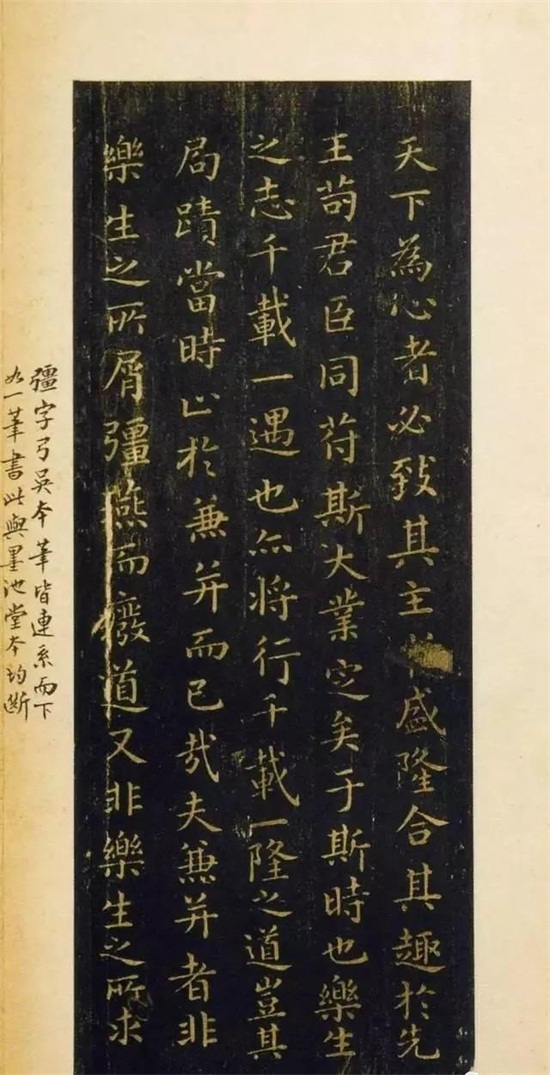 天下為心者必致其主於盛隆合其趣於先
王苟君臣同苻斯大業定矣于斯時也樂生
之志千載一遇也亦将行千載一隆之道豈其
局蹟當時止於兼并而已哉夫兼并者非
樂生之所屑彊燕而廢道又非樂生之所求
彊字弓吴本筆皆連系而下
如一筆書此與墨池堂本均斷